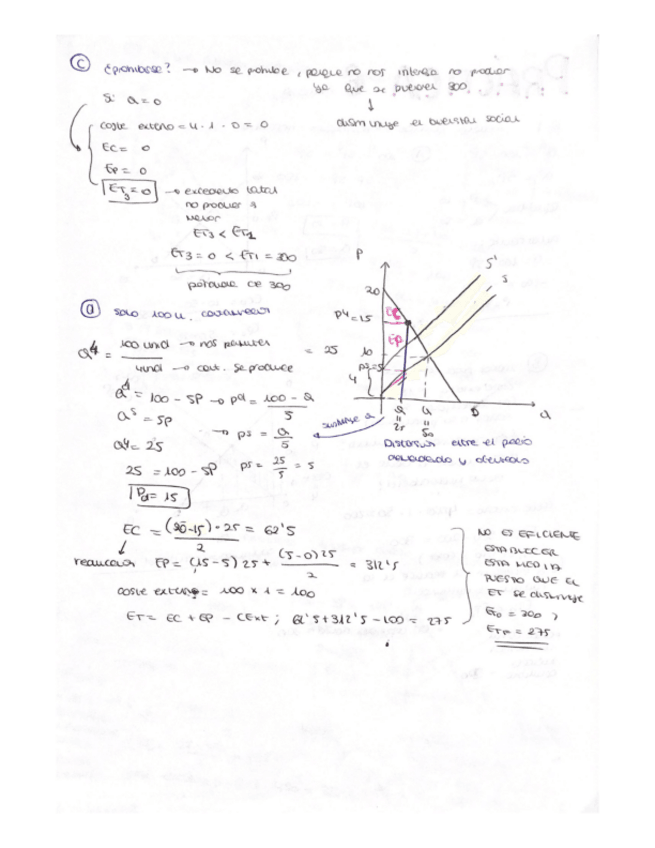 c ¿prohibirse? → No se prohibe, porque no nos interesa no producir
ya que se pierden 300.
↓
disminuye el bienestar social
Si Q = 0
coste externo = 4 · 1 · 0 = 0
EC = 0
Ep = 0
ET3 = 0 → excedente total
no producir es
menor
ET3 < ET1
ET3 = 0 < ET1 = 300
pérdida de 300
d solo 100 u. contaminación
Q4 = 100 und → nos permiten / 4 und → cont. se produce = 25
Qd = 100 - 5P → pd = 100 - Q / 5
Qs = 5p → ps = Q / 5
Q4 = 25
25 = 100 - 5P ps = 25 / 5 = 5
Pd = 15
P
S'
S
20
pd = 15
EC
EP
10
ps = 5
4
Q = 25
Q = 50
D
Q
sustituye Q
Distorsión entre el precio
demandado y ofrecido
EC = (20-15) · 25 / 2 = 62'5
EP = (15-5) 25 + (5-0) 25 / 2 = 312'5
coste externo = 100 x 1 = 100
ET = EC + EP - CExt ; 62'5 + 312'5 - 100 = 275
NO ES EFICIENTE
ESTABLECER
ESTA MEDIDA
PUESTO QUE EL
ET SE DISMINUYE
ET0 = 300 >
ETF = 275